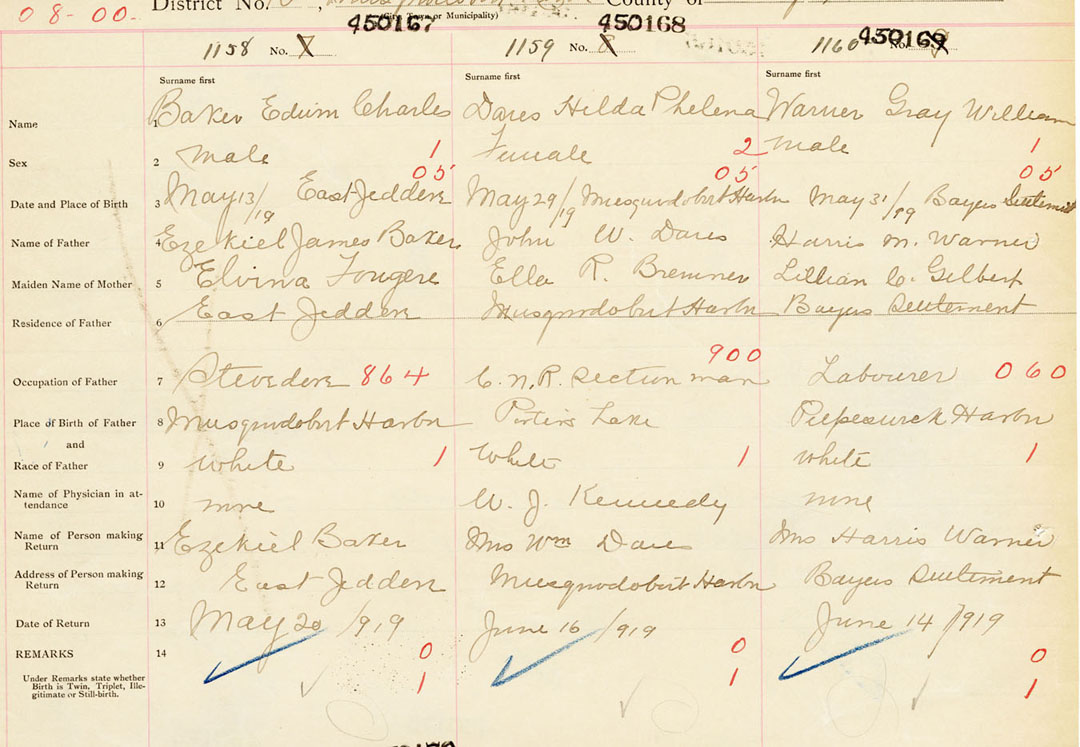 08-00. District No. , County of
(City, Town or Municipality)
450167 450168 450169
1158 No. 7 1159 No. 8 1160 No.
Surname first Surname first Surname first
Name 1 Baker Edwin Charles Dares Hilda Phelena Warner Gray William
Sex 2 Male 1 Female 2 Male 1
05 05 05
Date and Place of Birth 3 May 13/19 East Jeddore May 29/19 Musquodobit Harbr May 31/19 Bayers Settlement
Name of Father 4 Ezekiel James Baker John W. Dares Harris M. Warner
Maiden Name of Mother 5 Elvina Fougere Ella R. Bremner Lillian C. Gilbert
Residence of Father 6 East Jeddore Musquodobit Harbr Bayers Settlement
900
Occupation of Father 7 Stevedore 864 C.N.R. Section man Labourer 060
Place of Birth of Father 8 Musquodobit Harbr Porters Lake Harbr
and
Race of Father 9 White 1 White 1 White 1
Name of Physician in at-
tendance 10 none W. J. Kennedy none
Name of Person making
Return 11 Ezekiel Baker Mrs Wm Dares Mrs Harris Warner
Address of Person making
Return 12 East Jeddore Musquodobit Harbr Bayers Settlement
Date of Return 13 May 20/1919 June 16/1919 June 14/1919
REMARKS 14 0 0 0
Under Remarks state whether
Birth is Twin, Triplet, Ille-
gitimate or Still-birth. 1 1 1